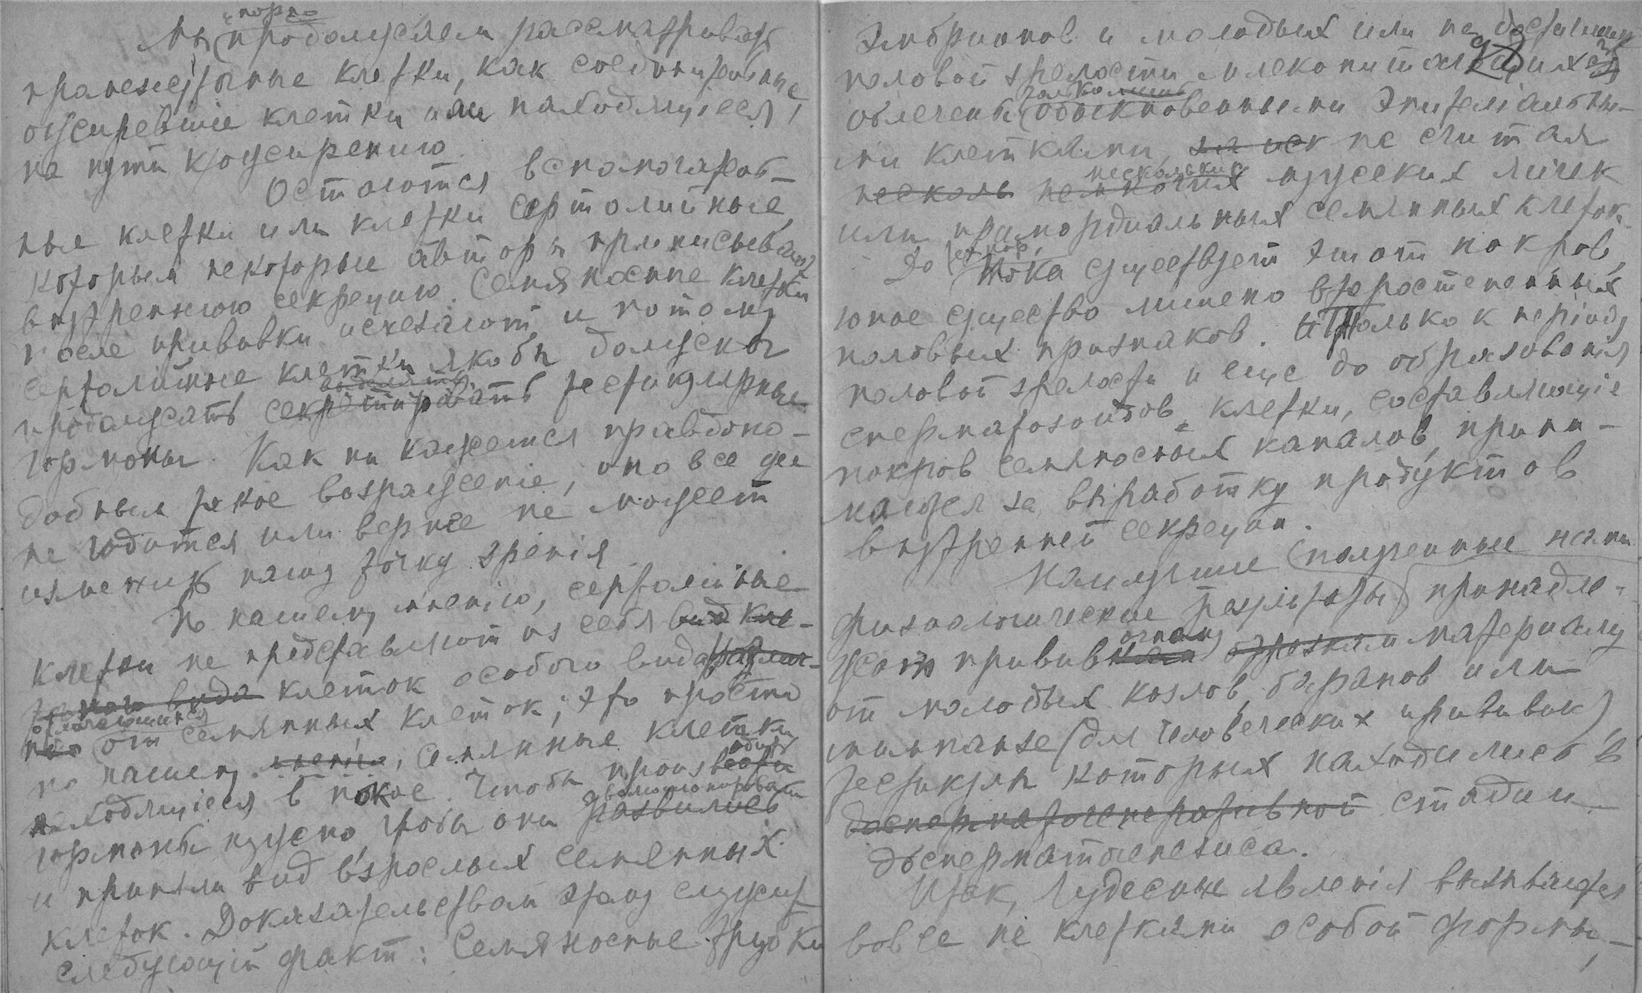 мы продолжаем рассматривать
промежуточные клетки, как соединительные
ожиревшие клетки или находящиеся
на пути к ожирению.
Остаются вспомогатель-
ные клетки или клетки сертолийные,
которым некоторые авторы приписывают
внутреннюю секрецию. Семяносные клетки
после прививки исчезают и потому
сертолийные клетки якобы должны
продолжать секретировать тестикулярные
гормоны. Как ни кажется правдопо-
добным такое возражение, оно все же
не годится или вернее не может
изменить нашу точку зрения
По нашему мнению, сертолийные
клетки не представляют из себя вид кле-
ного вида клеток особого вида
отличающихся от семянных клеток; это просто
по нашему мнению, семянные клетки
находящиеся в покое. Чтобы произвести
гормоны нужно чтобы они развились
и приняли вид взрослых семенных
клеток. Доказательством этому служит
следующий факт: Семяносные трубки
эмбрионов и молодых или не достигших
половой зрелости млекопитающих
облечены обыкновенными эпителиальны-
ми клетками, не считая
несколь немногих нескольких мужских яичек
или примордиальных семянных клеток.
До тех пор, пока существует этот покров,
юное существо лишено второстепенных
половых признаков. Только к периоду
половой зрелости и еще до образования
сперматозоидов, клетки, составляющие
покров семяносных каналов, прини-
маются за выработку продуктов
внутренней секреции.
Наилучшие полученные нами
физиологические результаты принадле-
жат привив материалу
от молодых козлов, баранов или
шимпанзе (для человеческих прививок)
тестикулы которых находились в
досперматогенеративной стадии
досперматогенезиса.
Итак, чудесные явления вызываются
вовсе не клетками особой формы,